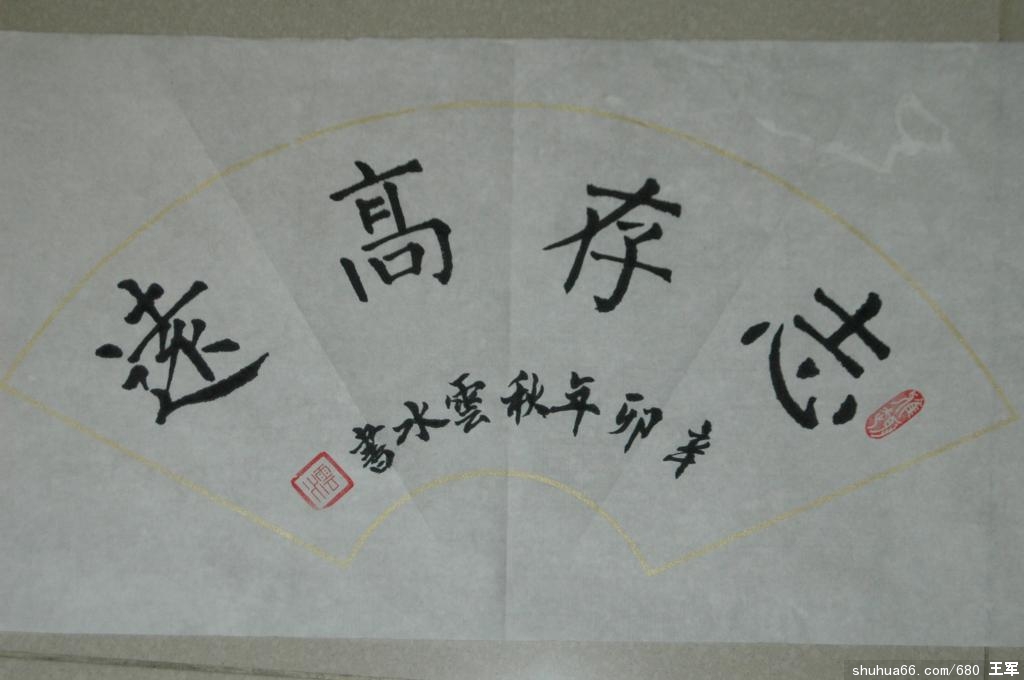 志存高遠
辛卯年秋雲水書
shuhua66.com/680 王军